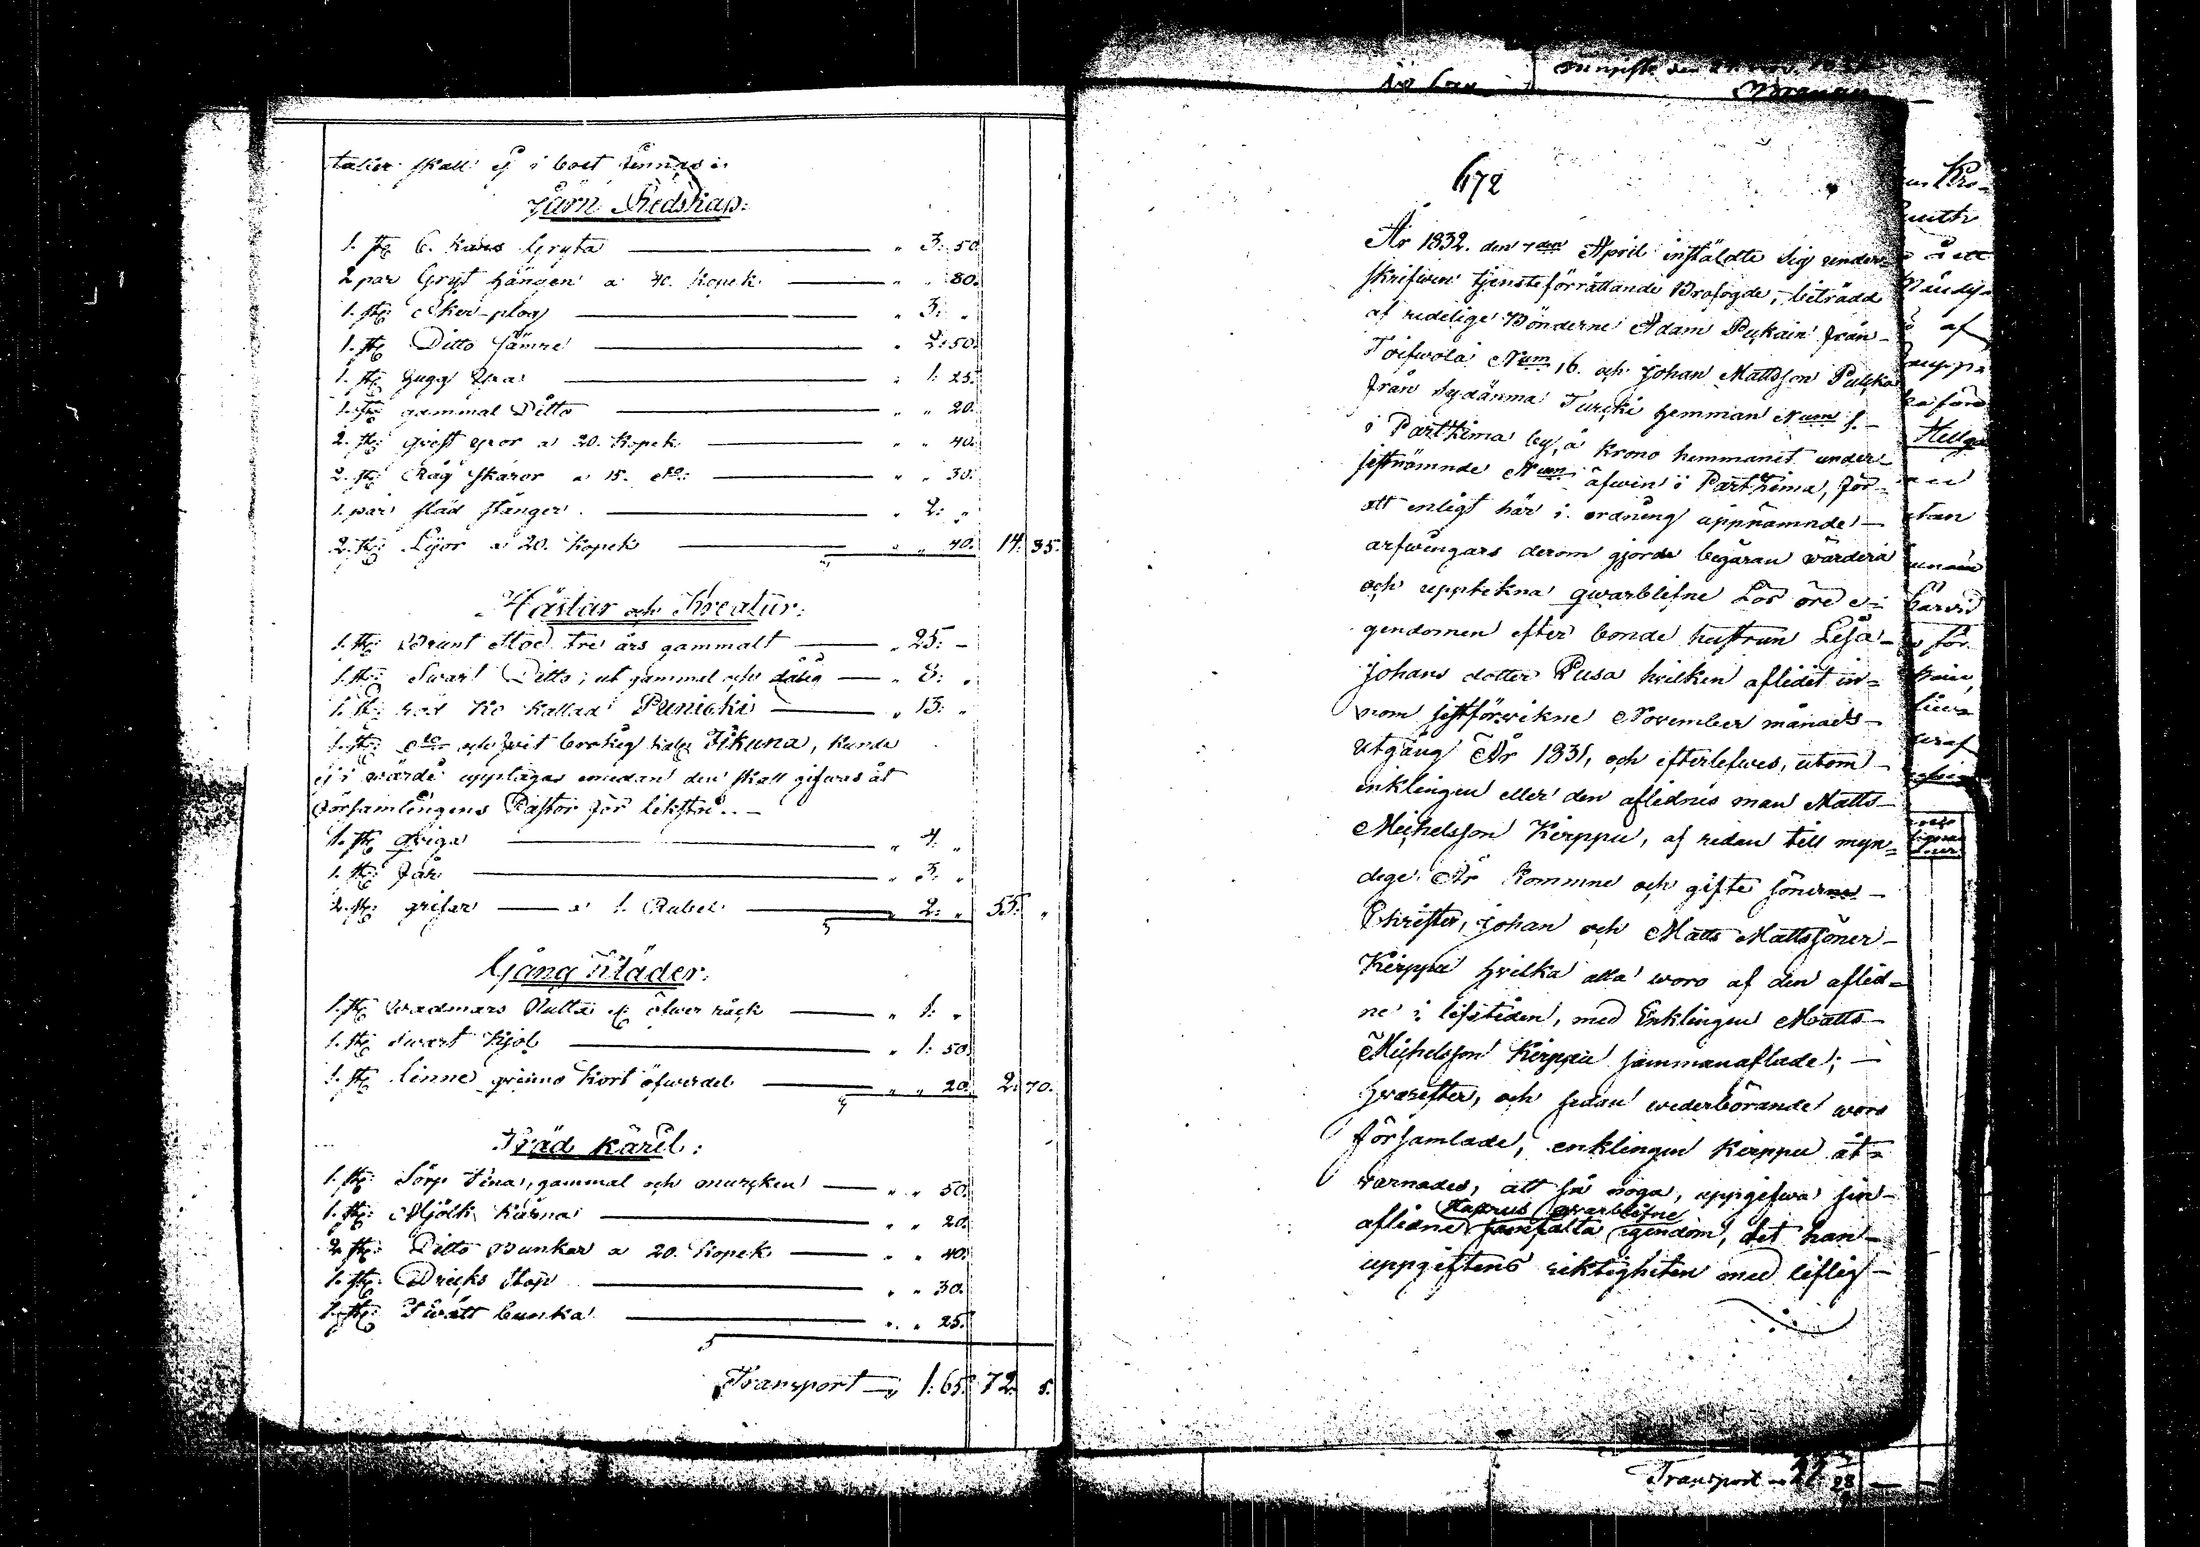 skall ej i boet finnas
Järn Redskap:
1. st: 6. kans Gryta " 3: 50
2 par Gryt hängen a 40. Kopek " " 80.
1. st: Åker-plog " 3: "
1. st: Ditto sämre " 2: 50.
1. st: hugg Yxa " 1: 25.
1. st: gammal Ditto " " 20.
2. st: a 20. Kopek " " 40.
2. st: Råg skäror a 15. do: " " 30.
1. par släd stänger. " 2: "
2. st: Lijor a 20. Kopek " " 40. 14: 35.
Hästar och Kreatur:
1. st: Brunt Stoo tre års gammalt " 25: -
1. st: Swart Ditto; ut gammal och dålig " 8: "
1. st: röd Ko kallad Punicki " 13: "
1. st: do och hwit brokig kalf Iikuna, kunde
ej i wärde upptagas emedan den skall gifwas åt
Församlingens Pastor för likstol. -
1. st: qwiga " 4: "
1. st: Får " 3: "
2. st: grisar a 1. Rubel " 2: " 55: "
Gång Kläder:
1. st: wadmars öfwer råck " 1: "
1. st: swart Kjol " 1: 50.
1. st: linne kort öfwerdel " " 20. 2: 70.
Träd käril:
1. st: Sörp Tina, gammal och murcken " " 50.
1. st: Mjölk Kärna " " 20.
2. st: Ditto Bunkar a 20. Kopek " " 40.
1. st: Dricks Stop " " 30.
1. st: Twätt bunka " " 25.
Transport " 1: 65. 72: 5.
672
År 1832. den 7de April inställdte sig under-
skrifwen tjensteförrättande Brofogde, biträdd
af redelige Bönderne Adam Pukain från
Toifwola Num 16. och Johan Mattsson Pulska
från Sydänma Turcki hemman Num 1. -
i Parthima by, å krono hemmanet under
sistnämnde Num äfwen i Parthima, för
att enligt här i ordning uppnämnde -
arfwingars derom gjorde begäran wärdera
och uppteckna qwarblefne Lös öre e-
gendomen efter bonde hustrun Lisa -
Johans dotter Pusa hvilken aflidit in-
nom sistförwikne November månads -
utgång År 1831, och efterlefwes, utom -
enklingen eller den aflidnes man Matts -
Michelsson Kirppu, af redan till myn-
dige År komne och gifte söner -
Christer, Johan och Matts Mattssöner -
Kirppu hvilka alla woro af den aflid-
ne i lifstiden, med Enklingen Matts -
Michelsson Kirppu sammanaflade; -
hwarefter, och sedan wederbörande woro
församlade, enklingen Kirppu åt-
warnades, att så noga, uppgifwa sin -
hustrus qwarblefne
aflidne egendom, det han -
uppgiftens riktigheten med liflig -
Transport